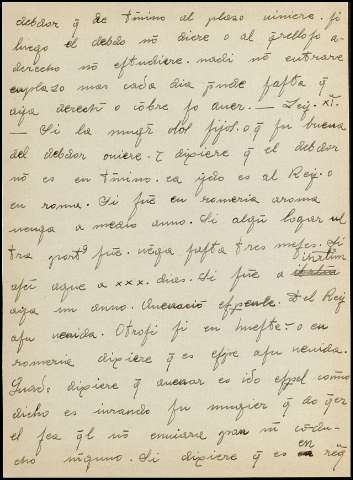 debdor q̃ de t̃mino al plazo viniere. si
luego el debdo nõ diere o al q̃relloso a-
derecho nõ estudiere. nadi nõ entrare
enplazo mas cada dia pñde fasta q̃
aya derecho o cobre so aver. — Ley. xi.
— Si la mug̃r del fijo. o q̃ su buena
del debdor oviere. τ dixiere q̃ el debdor
nõ es en t̃mino. ca ydo es al Rey. o
en roma. Si fue en romeria aroma
venga a medio anno. Si algũ logar ul
tra port⁹ fue. vẽga fasta tres meses. Si
aqui aque a xxx. dias. Si fue a
aya un anno. del Rey
asu venida. Otrosi si en hueste - o en
romeria dixiere q̃ es espe asu venida.
dixiere q̃ es ido como
dicho es iurando su mugier q̃ do q̃er
el sea q̃l nõ enviara pan nĩ condu-
cho ninguno. Si dixiere q̃ es en